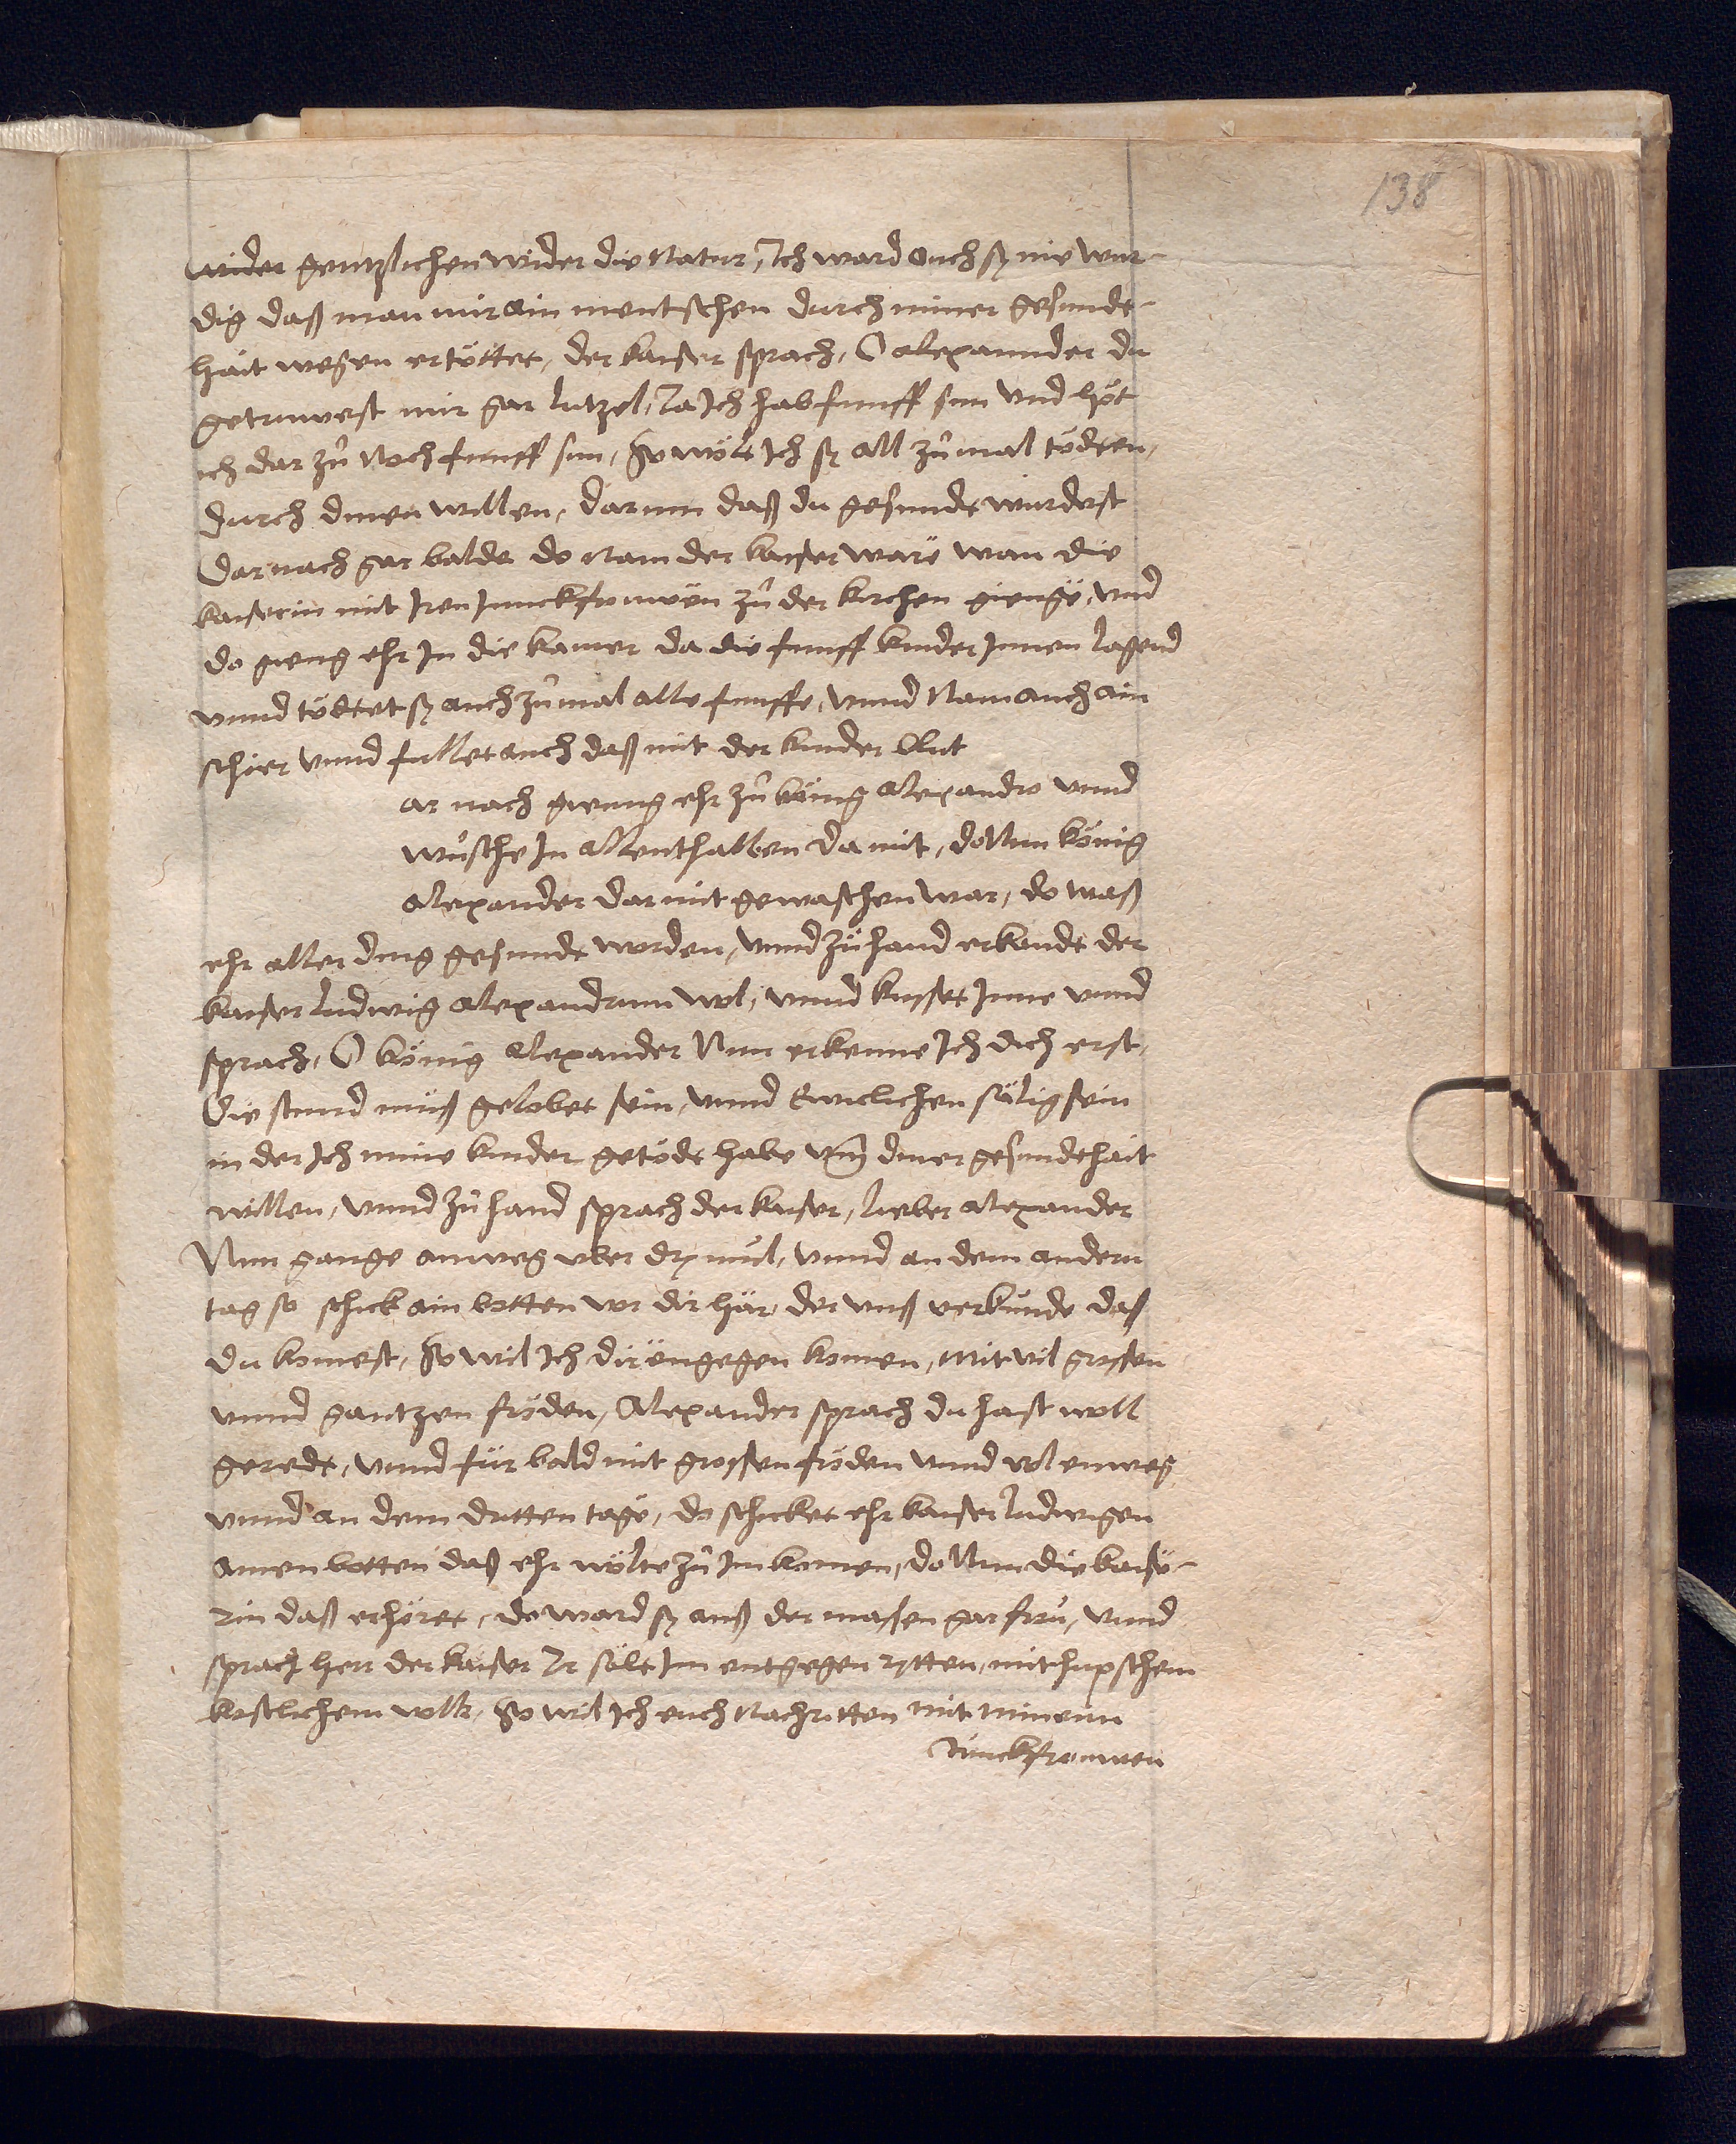 138
wider gentzlichen wider die Natur, Ich ward ouch sy nie wur-
dig daß man mir ain mentschen durch miner gesunde-
hait wegen ertöttet, der kaiser sprach, O alexannder du
getruwest mir gar lutzel, Ja Ich hab funff sun vnd het
ich dar zů Noch funff sun, So wölt Ich sy all zů mal tödten,
durch dinen willen, darum daß du gesundt wurdest
Dar nach gar balde do Nam der kaiser ware wan die
kaiserin mit Iren Junckfrouwen zů der kirchen gienge, vnd
do gieng ehr In die kamer da die funff kinder Innen lagend
vnnd töttet sy auch zů mal alle funffe, vnnd Nam auch ain
schier vnnd fullet auch daß mit der kinder blut
ar nach gienng ehr zů könig Alexandro vnnd
wůsche In allenthalben damit, do Nun könig
Alexander dar mit gewaschen war, do waß
ehr aller ding gesundt worden, vnnd zů hand erkandt der
kaiser ludwig Alexandrum wol, vnnd kusset Inne vnnd
sprach, O könig Alexander Nun erkenne Ich dich erst,
Die stund můß gelobet sein, vnnd Ewiclichen sälig sein
in der Ich mine kinder getödt habe vm diner gesundthait
willen, vnnd zů hand sprach der kaiser, lieber Alexander
Nun gange anweg vber dry mil, vnnd an dem andern
tag so schick ain botten vor dir här, der vnß verkunde daß
du komest, So wil Ich dir engegen komen, mit vil grossen
vnnd gantzen fröden, Alexander sprach du hast woll
geredt, vnnd fůr bald mit grossen fröden vnnd wol enweg
vnnd an dem dritten tage, do schicket ehr kaiser ludwigen
ainen botten daß ehr wölte zů Im komen, do Nun die kaise-
rin daß erhöret, do ward sy auß der masen gar fro, vnnd
sprach herr der kaiser Ir sölt Im entgegen rytten, mit hupschem
kostlichem volk, So wil Ich euch Nach ritten mit minenn
Junckfrouwen